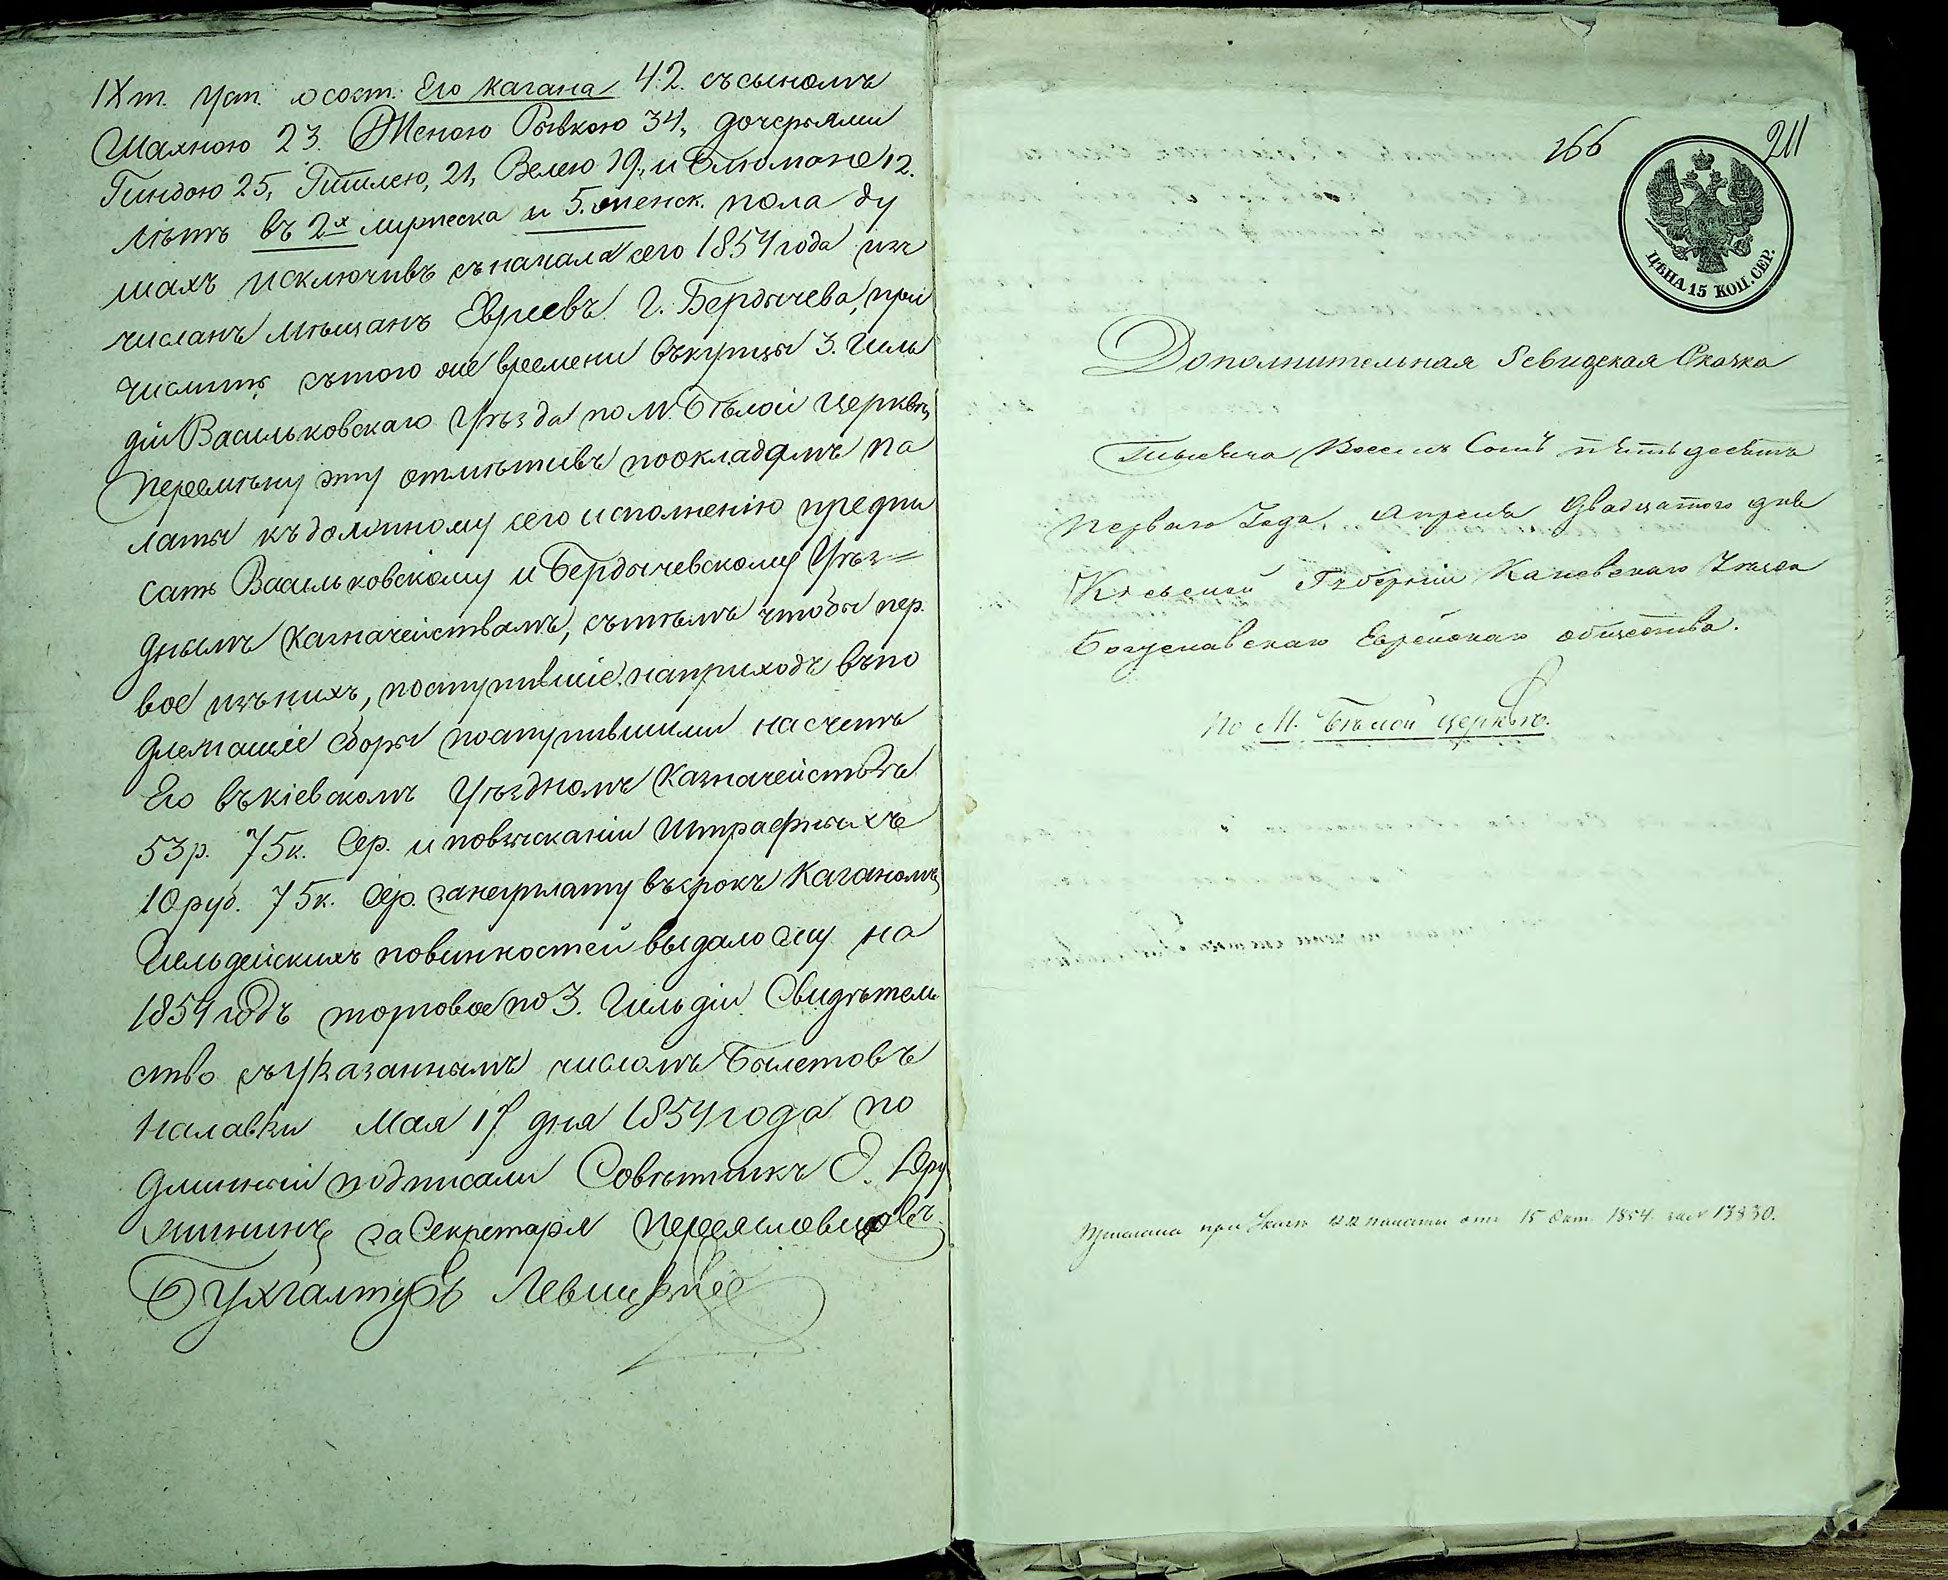 IXт. Уст. о сост. Его Кагана 42. съ сыномъ
Шаяною 23. Женою Рывкою 34, дочерьями
Гиндою 25, Гитлею, 21, Велею 19, и Блюмоне 12.
лѣтъ въ 2х мужеска и 5. женск. пола ду
шахъ исключивъ съ начала сего 1854 года изъ
числанъ мѣщанъ Евреевъ г. Бердичева, при
числить съ того же времени въ купцы 3. гиль
діи Васильковскаго Уѣзда по М. Бѣлой Церкви,
перемѣну эту отмѣтивъ по окладамъ па
латы къ должному сего исполненію предпи
сать Васильковскому и Бердычевскому Уѣз=
днымъ Казначействамъ, съ тѣмъ чтобы пер
вое изъ нихъ, поступившіе на приходъ въ по
длежащіе сборы поступившими на счетъ
Его въ Кіевскомъ Уѣздномъ Казначействѣ
53 р. 75 к. Сер. и по взысканіи Штрафныхъ
10 руб. 75 к. Сер. за неуплату въ срокъ Каганомъ
Гильдейскихъ повинностей выдало ему на
1854 годъ торговое по 3. Гильдіи Свидѣтель
ство съ указаннымъ числомъ Билетовъ
на лавки Мая 17 дня 1854 года по
длинный подписали Совѣтникъ
за Секретаря
Бухгалтеръ Левицкій
166 211
ЦѢНА 15 КОП. СЕР.
Дополнительная Ревизская Сказка
Тысяча Восемь Сотъ пятьдесятъ
Перваго Года, Апрѣля Двадцатого дня
Кіевской Губерніи Каневскаго Уѣзда
Богуславскаго Еврейскаго общества.
По М. Бѣлой Церквѣ.
при палаты отъ 15 Окт. 1854. за № 13830.